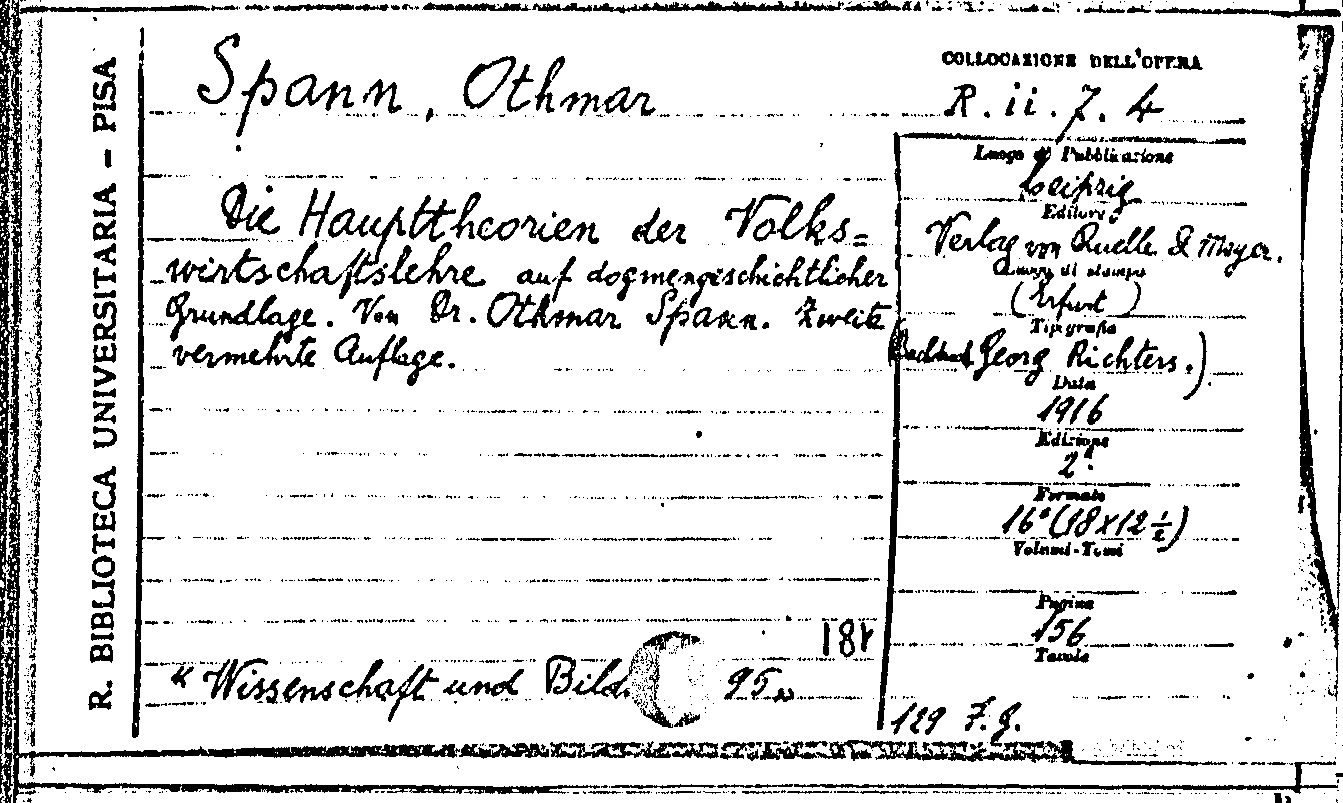 R. BIBLIOTECA UNIVERSITARIA – PISA
Spann, Othmar
Die Haupttheorien der Volks=
wirtschaftslehre auf dogmengeschichtlicher
Grundlage. Von Dr. Othmar Spann. Zweite
vermehrte Auflage.
181
"Wissenschaft und Bild. 95"
COLLOCAZIONE DELL'OPERA
R. ii. 7. 4
Luogo di Pubblicazione
Leipzig
Editore
Verlag von Quelle & Meyer.
Luogo di stampa
(Erfurt)
Tipografia
Georg Richters.)
Data
1916
Edizione
2ª
Formato
16° (18x12½)
Volumi-Tomi
Pagine
156
Tavole
129 F.G.